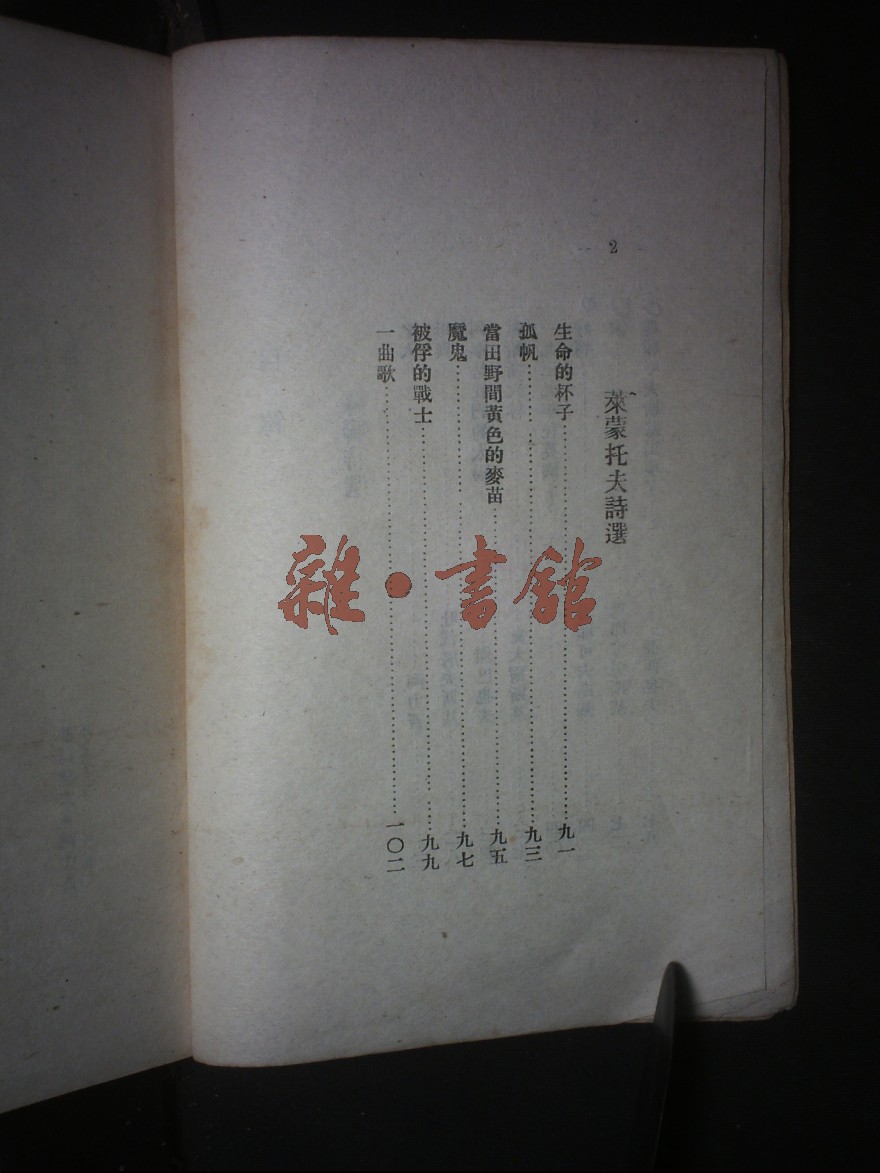 2
萊蒙托夫詩選
生命的杯子……九一
孤帆……九三
當田野間黃色的麥苗……九五
魔鬼……九七
被俘的戰士……九九
一曲歌……一〇二
雜·書館